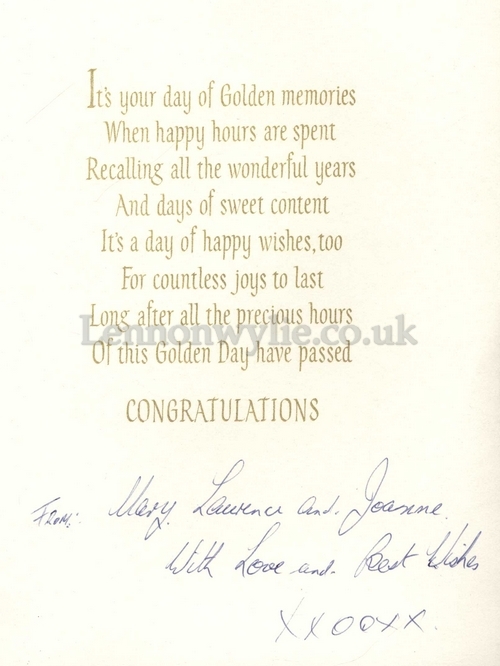 It's your day of Golden memories
When happy hours are spent
Recalling all the wonderful years
And days of sweet content
It's a day of happy wishes, too
For countless joys to last
Long after all the precious hours
Lennonwylie.co.uk
Of this Golden Day have passed
CONGRATULATIONS
From: Mary, Lawrence and Joanne.
With Love and Best Wishes
XXOOXX.